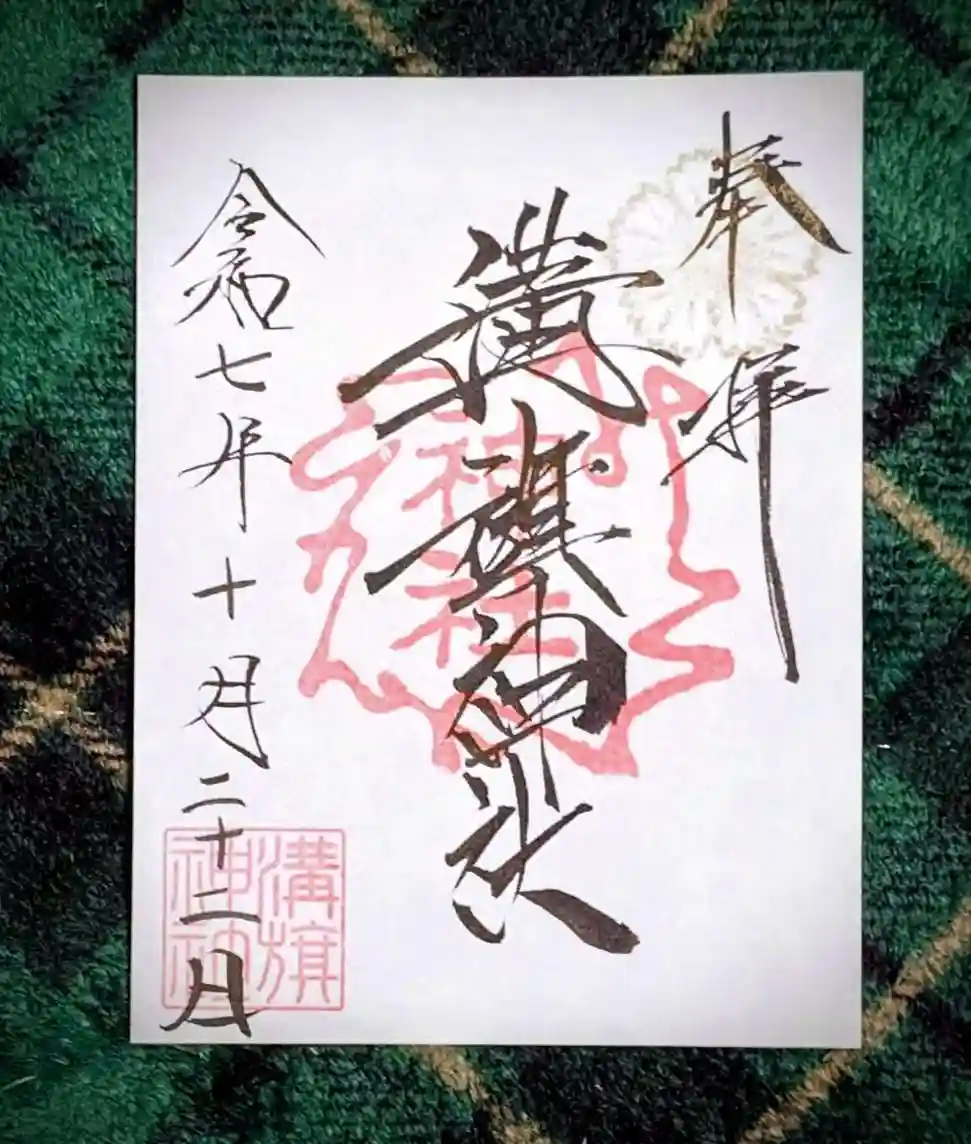 奉拝
溝旗神社
神社
令和七年十月二十二日
溝旗
神社